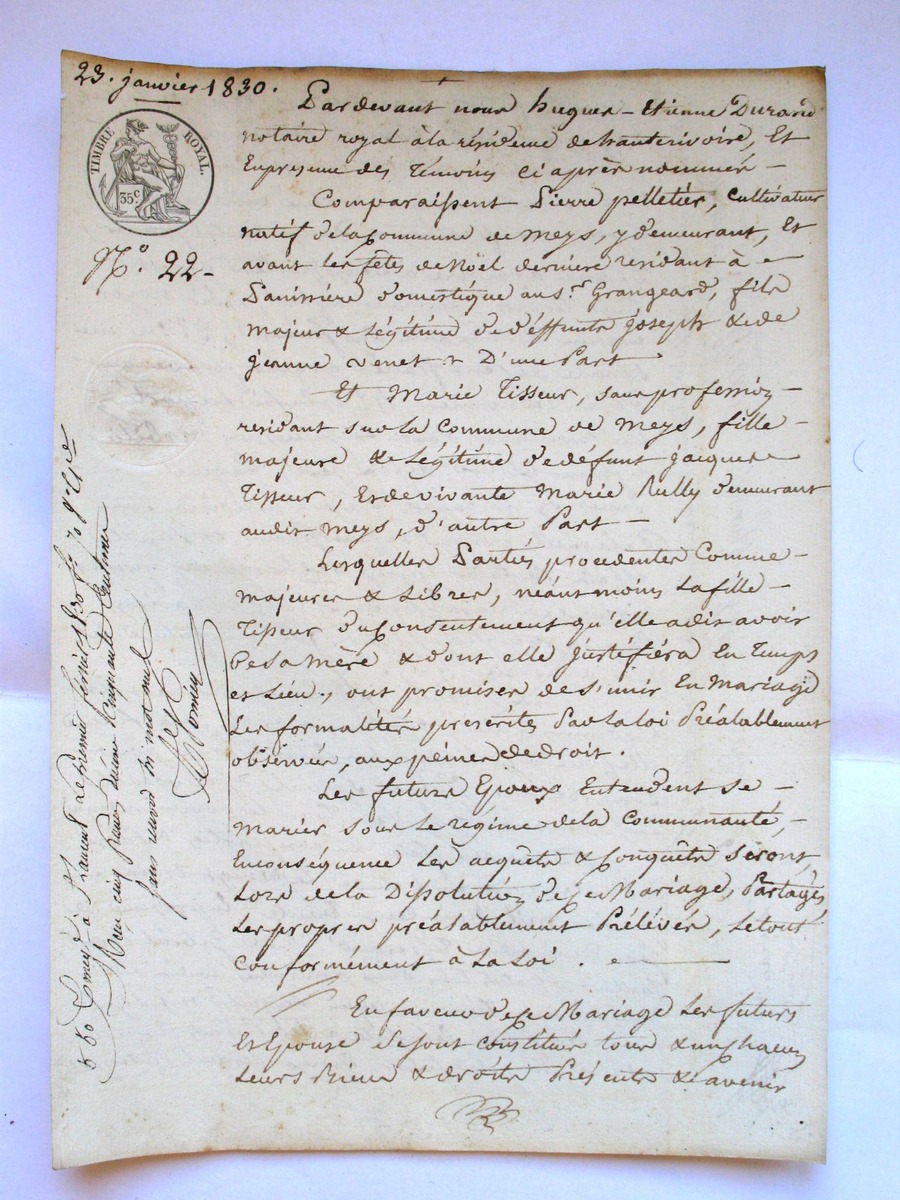 23. janvier 1830.
TIMBRE ROYAL.
35c
No. 22 -
Pardevant nous hugues - Etienne Durand
notaire royal à la résidence de hauterivoire, Et
En presence des témoins ci après nommés -
Comparaissent Pierre pelletier, Cultivateur
natif de la Commune de Meys, y demeurant, Et
avant les fêtes de Noël dernière residant à
Panissière domestique au sr. Grangeard, fils
majeur & Légitime de déffunts joseph & de
jeanne venet D'une Part
Et Marie Tisseur, sans profession
residant sur la Commune de Meys, fille -
majeure & Légitime de défunt jacques
Tisseur, Et de vivante Marie Rully demeurant
audit Meys, d'autre Part -
Lesquelles Parties procedentes Comme -
majeures & Libres, néantmoins La fille -
Tisseur du Consentement qu'elle a dit avoir
de sa mère & dont elle justifiéra En Temps
et Lieu, ont promises de s'unir En Mariage
Les formalités prescrites Par la loi Préalablement
observées, aux peines de droit.
Les futurs Epoux Entendent se -
Marier sous Le régime de la Communauté,
En conséquence Les acquêts & Conquêts seront,
Lors de la Dissolution de ce Mariage, Partagés
Les propres préalablement Prélevés, le tout
conformément à La Loi .
En faveur de ce Mariage Les futurs
Et Epouse se sont constitués tous & un chacun
Leurs Biens & droits Présents & avenir
à St Laurent le premier février 1830 fo. 70
Reçu cinq francs dixième Cinquante Centimes
sans renvoi ni mot nul